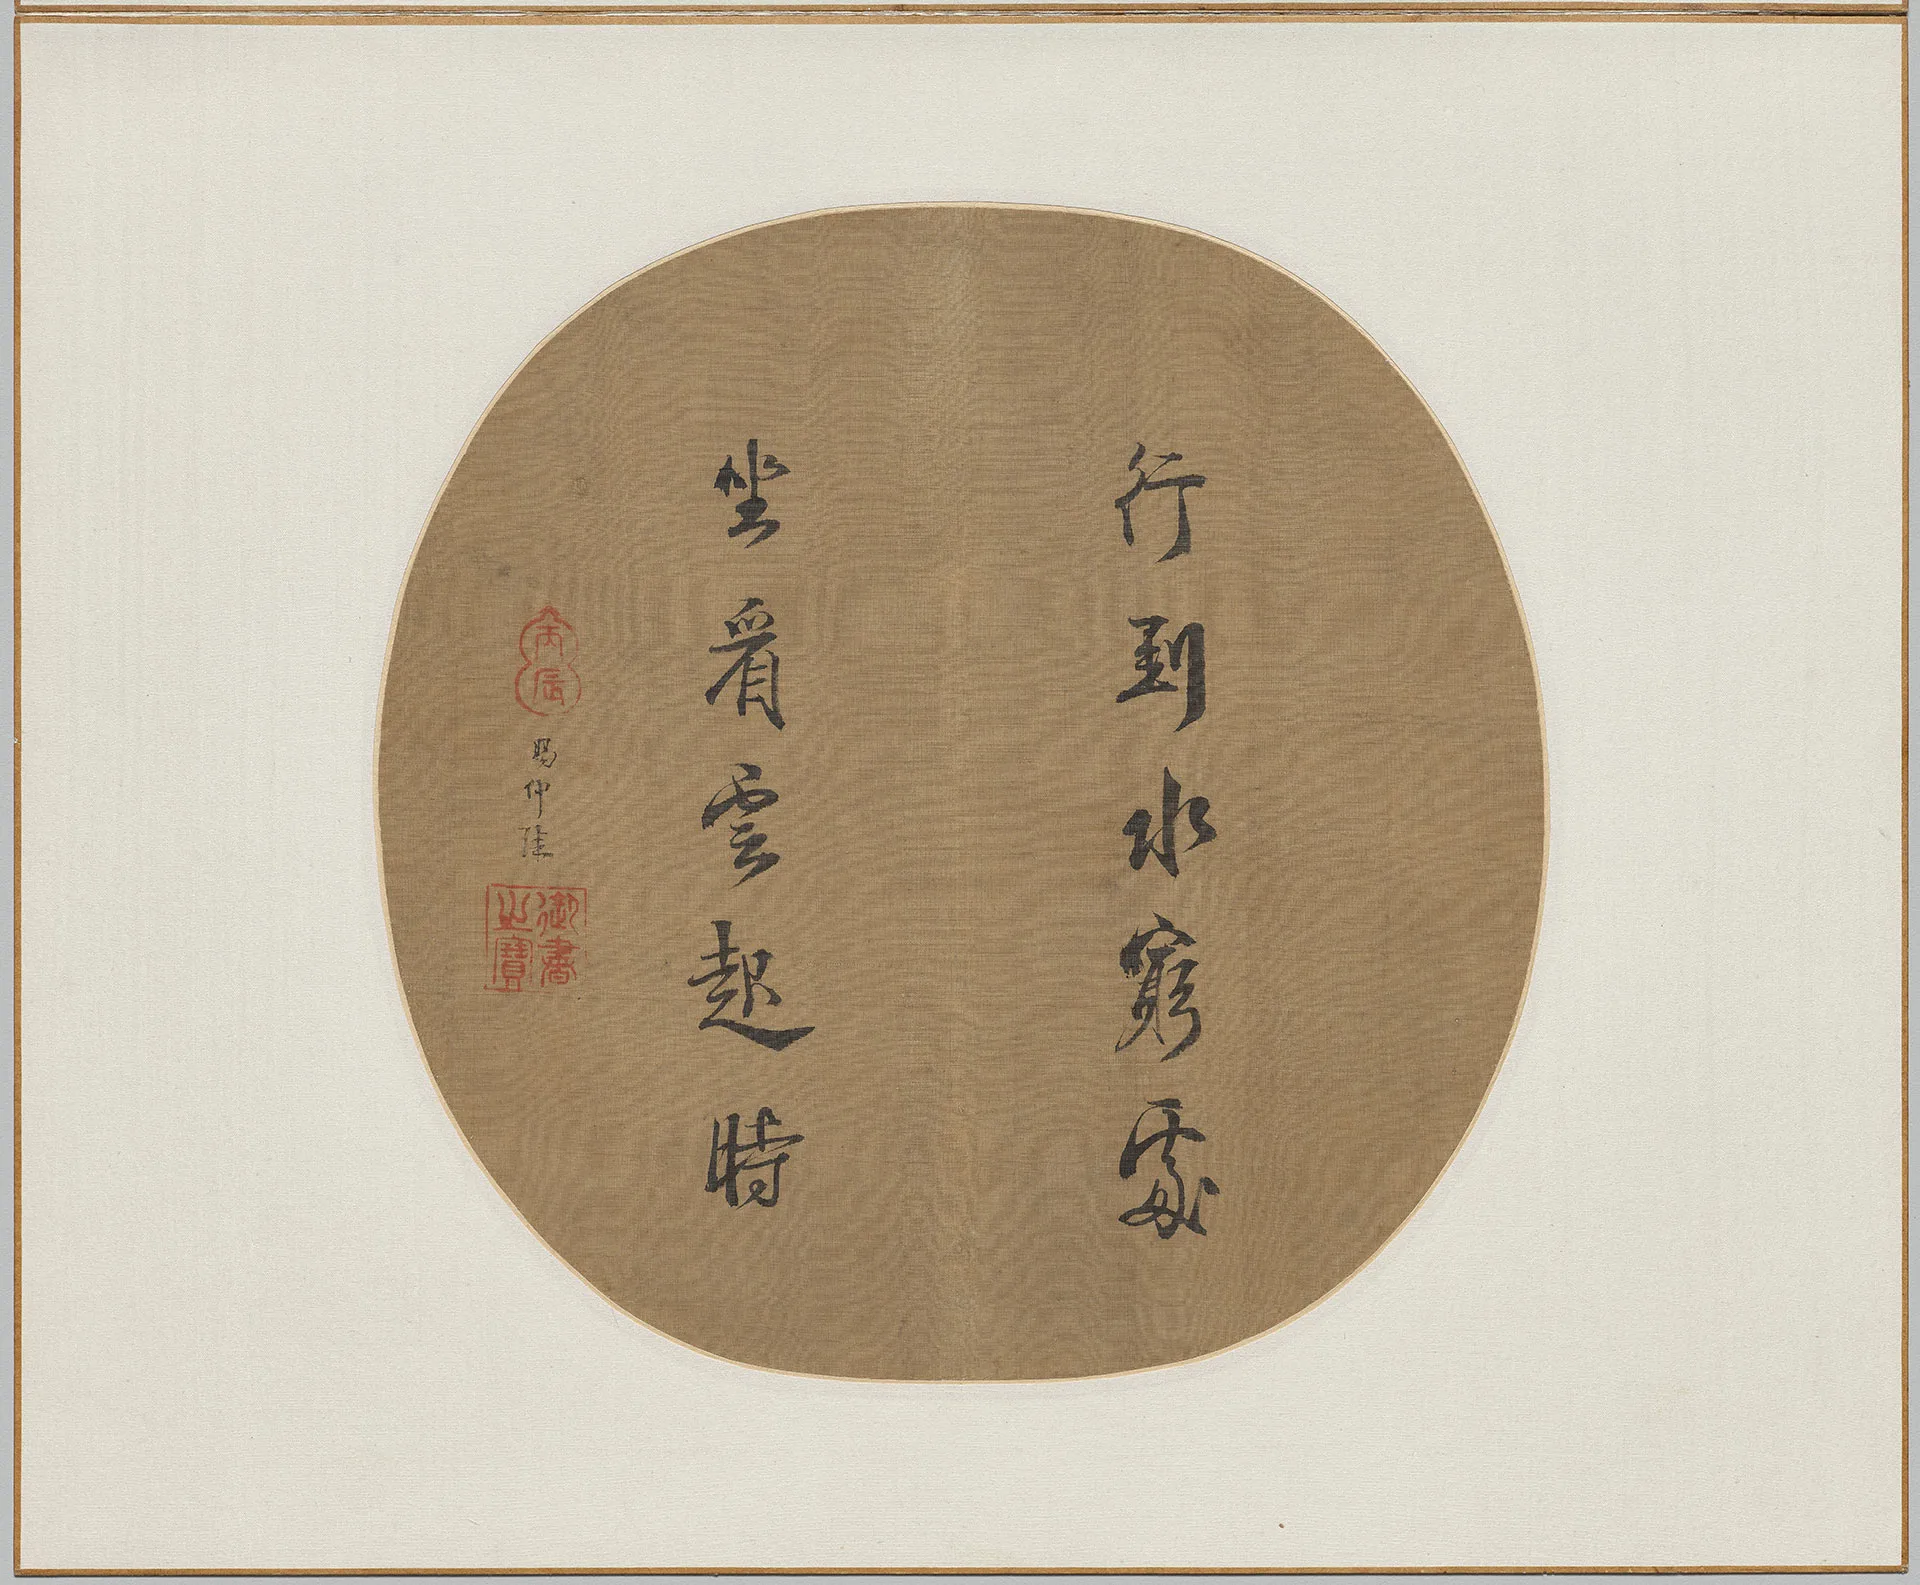 行到水窮處
坐看雲起時
丙辰
賜仲臻
御書之寶